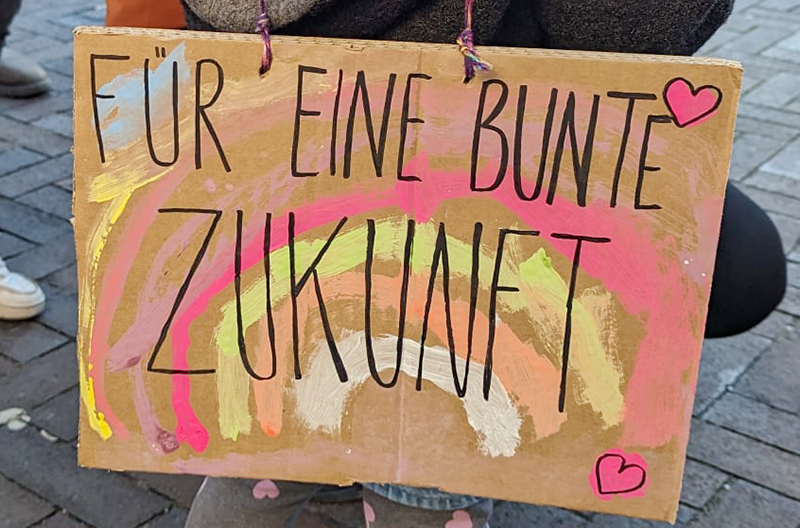 FÜR EINE BUNTE
ZUKUNFT